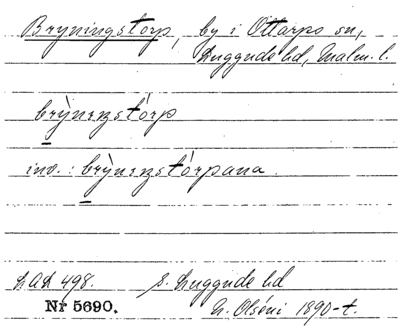 Bryningstorp, by i Ottarps sn,
Luggude hd, Malm. l.
brỳnɪŋstórp
inv.: brỳnɪŋstórpana.
LAL 498. S. Luggude hd
Nr 5690. N. Olséni 1890-t.